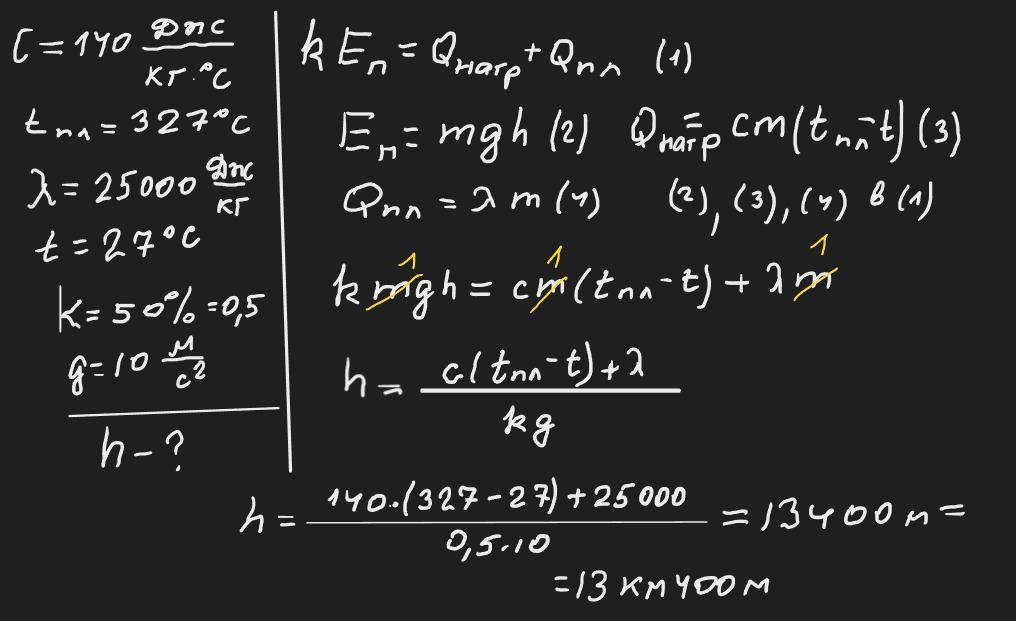 C = 140 Дж/кг·°C
tпл = 327°C
λ = 25000 Дж/кг
t = 27°C
K = 50% = 0,5
g = 10 м/с²
h - ?
k Eп = Qнагр + Qпл (1)
Eп = mgh (2) Qнагр = cm(tпл - t) (3)
Qпл = λ m (4) (2), (3), (4) в (1)
1 1 1
k mgh = cm(tпл - t) + λ m
h = c(tпл - t) + λ / kg
h = 140·(327 - 27) + 25000 / 0,5·10 = 13400 м =
= 13 км 400 м